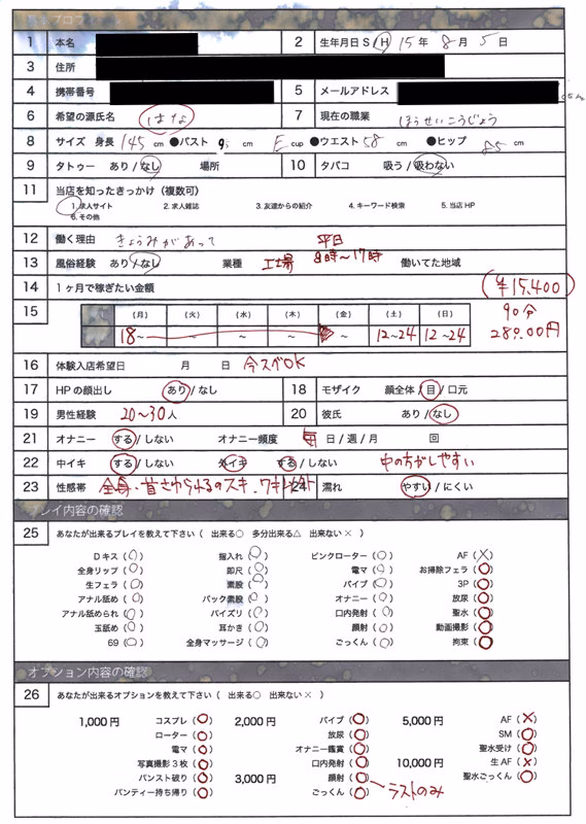 基本プロフ
1 本名 2 生年月日 S / H 15 年 8 月 5 日
3 住所
4 携帯番号 5 メールアドレス
6 希望の源氏名 はな 7 現在の職業 ほうせいこうじょう
8 サイズ 身長 145 cm ●バスト cm E cup ●ウエスト 58 cm ●ヒップ 85 cm
9 タトゥー あり / なし 場所 10 タバコ 吸う / 吸わない
11 当店を知ったきっかけ (複数可)
1. 求人サイト 2. 求人雑誌 3. 友達からの紹介 4. キーワード検索 5. 当店 HP
6. その他
12 働く理由 きょうみがあって 平日
13 風俗経験 あり / なし 業種 工場 8時〜17時 働いてた地域
14 1ヶ月で稼ぎたい金額 (¥15,400)
15 (月) (火) (水) (木) (金) (土) (日) 90分
18〜 〜 〜 〜 〜 12〜24 12〜24 28000円
16 体験入店希望日 月 日 今スグOK
17 HPの顔出し あり / なし 18 モザイク 顔全体 / 目 / 口元
19 男性経験 20〜30 人 20 彼氏 あり / なし
21 オナニー する / しない オナニー頻度 毎 日 / 週 / 月 回
22 中イキ する / しない 外イキ する / しない 中の方がしやすい
23 性感帯 全身・首さわられるのスキ 24 濡れ やすい / にくい
プレイ内容の確認
25 あなたが出来るプレイを教えて下さい ( 出来る○ 多分出来る△ 出来ない× )
Dキス (○) 指入れ (○) ピンクローター (○) AF (×)
全身リップ (○) 即尺 (○) 電マ (○) お掃除フェラ (○)
生フェラ (○) 素股 (○) バイブ (○) 3P (○)
アナル舐め (○) バック素股 (○) オナニー (○) 放尿 (○)
アナル舐められ (○) パイズリ (○) 口内発射 (○) 聖水 (○)
玉舐め (○) 耳かき (○) 顔射 (○) 動画撮影 (○)
69 (○) 全身マッサージ (○) ごっくん (○) 拘束 (○)
オプション内容の確認
26 あなたが出来るオプションを教えて下さい ( 出来る○ 出来ない× )
1,000円 コスプレ (○) 2,000円 バイブ (○) 5,000円 AF (×)
ローター (○) 放尿 (○) SM (○)
電マ (○) オナニー鑑賞 (○) 聖水受け (○)
写真撮影3枚 (○) 口内発射 (○) 10,000円 生AF (×)
パンスト破り (○) 3,000円 顔射 (○) 聖水ごっくん (○)
パンティー持ち帰り (○) ごっくん (○) ラストのみ